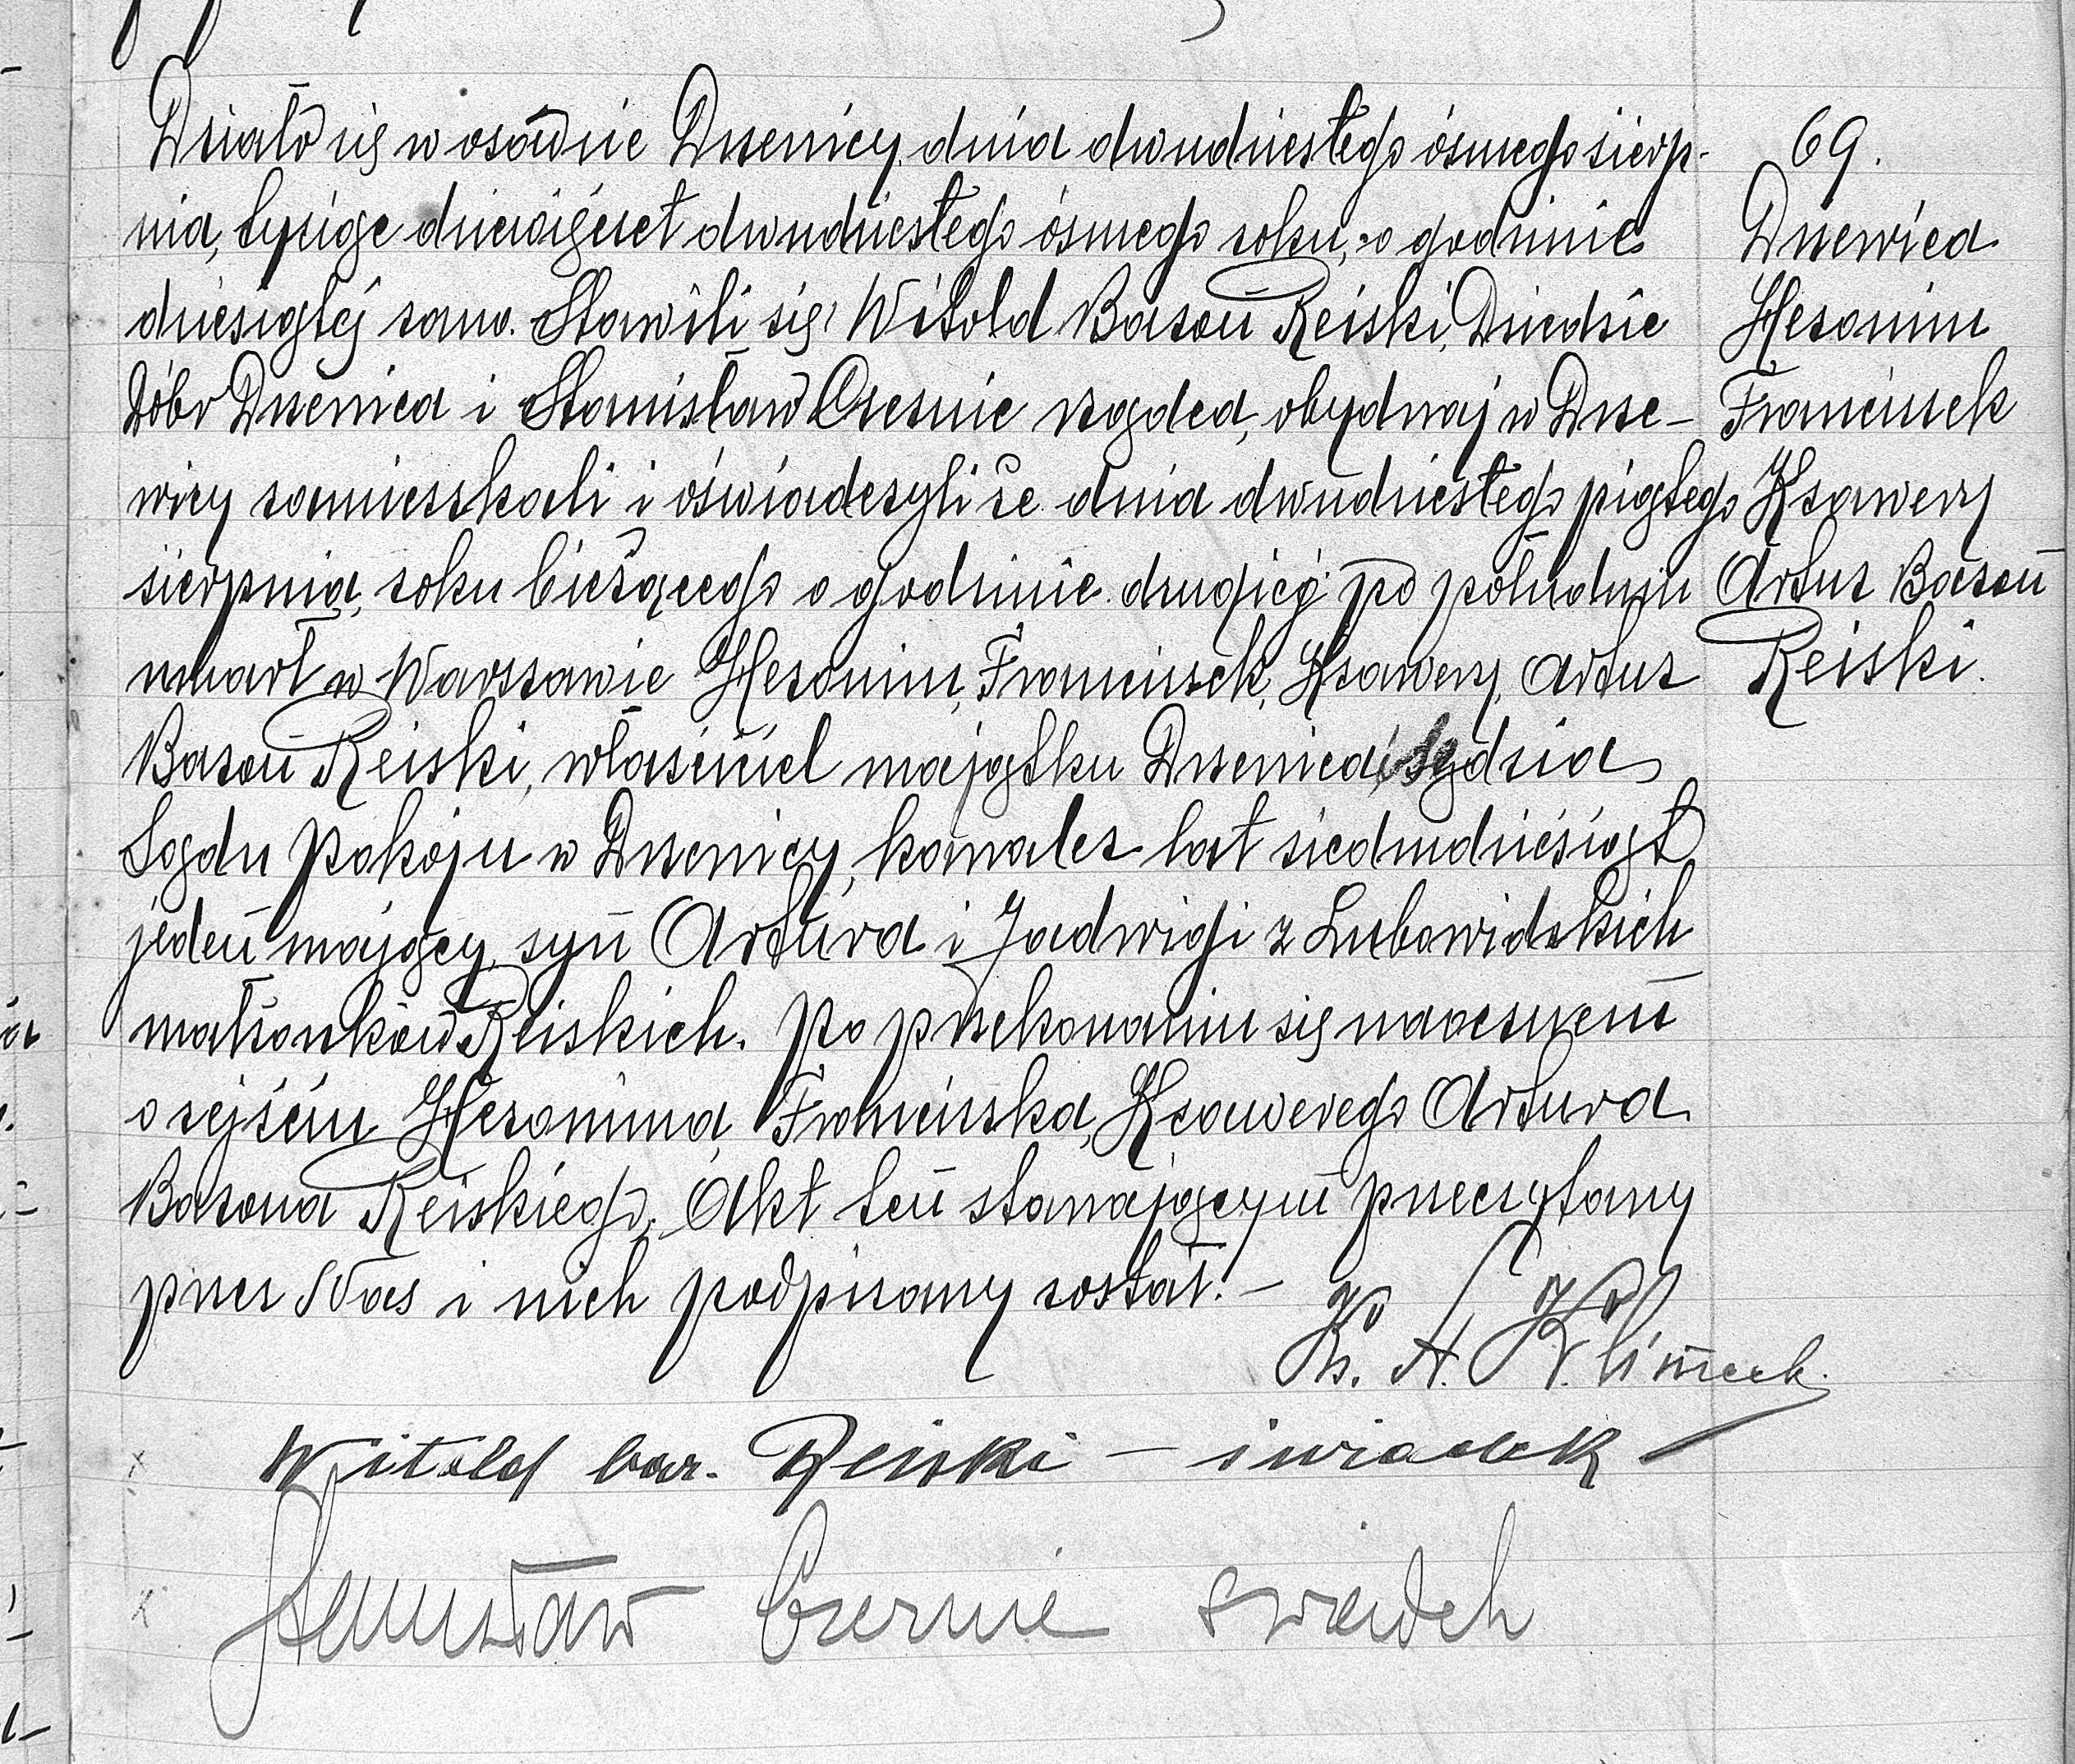 Działo się w osadzie Drzewicy dnia dwudziestego ósmego sierp-
nia, tysiąc dziewięćset dwudziestego ósmego roku, o godzinie
dziesiątej rano. Stawili się Witold Baron Reiski, Dziedzic
Dóbr Drzewica i Stanisław Czernie rządca, obydwaj w Drze-
wicy zamieszkali i oświadczyli że dnia dwudziestego piątego
sierpnia, roku bieżącego o godzinie drugiej po południu
umarł w Warszawie Hieronim, Franciszek, Ksawery, Artur
Baron Reiski, właściciel majątku Drzewica, sędzia
Sądu Pokoju w Drzewicy, kawaler lat siedmdziesiąt
jeden mający, syn Artura i Jadwigi z Lubowidzkich
małżonków Reiskich. Po przekonaniu się naocznem
o zejściu Hieronima, Franciszka, Ksawerego Artura
Barona Reiskiego. Akt ten stawającym przeczytany
przez Nas i nich podpisany został.–
Ks. A. Klimeck.
Witold bar. Reiski – świadek
Stanisław Czernie świadek
69.
Drzewica
Hieronim
Franciszek
Ksawery
Artur Baron
Reiski.